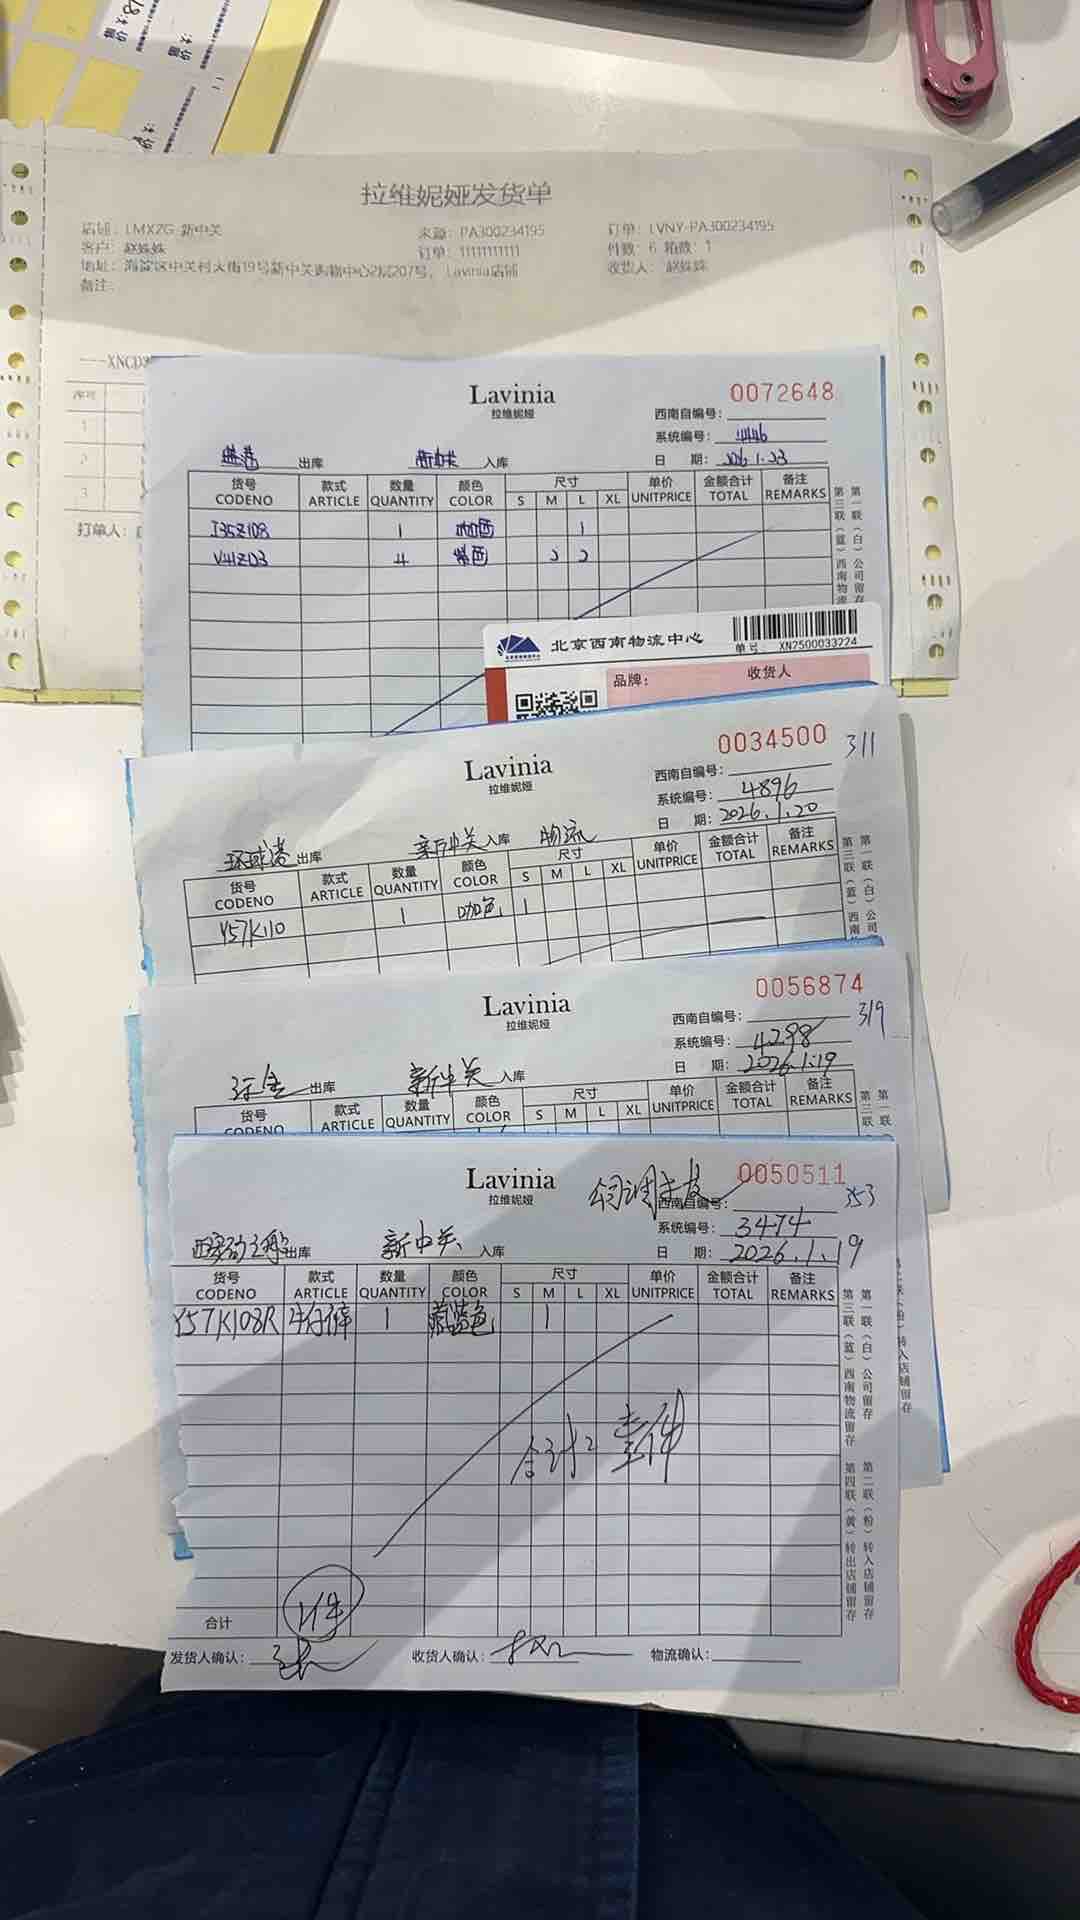 拉维妮娅发货单
店铺：LMXZG-新中关
来源：PA300234195
订单：LVNY-PA300234195
客户：赵姝姝
订单：11111111111
件数：6 箱数：1
地址：海淀区中关村大街19号新中关购物中心2层207号，Lavinia店铺
收货人：赵姝姝
备注：
序号
1
2
3
打单人：
Lavinia
拉维妮娅
0072648
西南自编号：
系统编号：4446
日 期：2026.1.23
出库
新中关 入库
货号 款式 数量 颜色 尺寸 单价 金额合计 备注
CODENO ARTICLE QUANTITY COLOR S M L XL UNITPRICE TOTAL REMARKS
J35Z108 1 咖色 1
V41Z03 4 紫色 2 2
第一联（白）公司留存
第三联（蓝）西南物流
北京西南物流中心
单号：XN2500033224
品牌：
收货人
Lavinia
拉维妮娅
0034500
311
西南自编号：
系统编号：4896
日 期：2026.1.20
环球港 出库
新中关 入库 物流
货号 款式 数量 颜色 尺寸 单价 金额合计 备注
CODENO ARTICLE QUANTITY COLOR S M L XL UNITPRICE TOTAL REMARKS
Y57K110 1 咖色 1
第一联（白）公司
第三联（蓝）西南
Lavinia
拉维妮娅
0056874
319
西南自编号：
系统编号：4298
日 期：2026.1.19
出库
新中关 入库
货号 款式 数量 颜色 尺寸 单价 金额合计 备注
CODENO ARTICLE QUANTITY COLOR S M L XL UNITPRICE TOTAL REMARKS
第一联
第三联
Lavinia
拉维妮娅
0050511
353
西南自编号：
系统编号：3474
日 期：2026.1.19
出库
新中关 入库
货号 款式 数量 颜色 尺寸 单价 金额合计 备注
CODENO ARTICLE QUANTITY COLOR S M L XL UNITPRICE TOTAL REMARKS
Y57K103R 牛仔裤 1 藏蓝色 1
合计：壹件
第一联（白）公司留存 第二联（粉）转入店铺留存
第三联（蓝）西南物流留存 第四联（黄）转出店铺留存
合计 1件
发货人确认：
收货人确认：
物流确认：